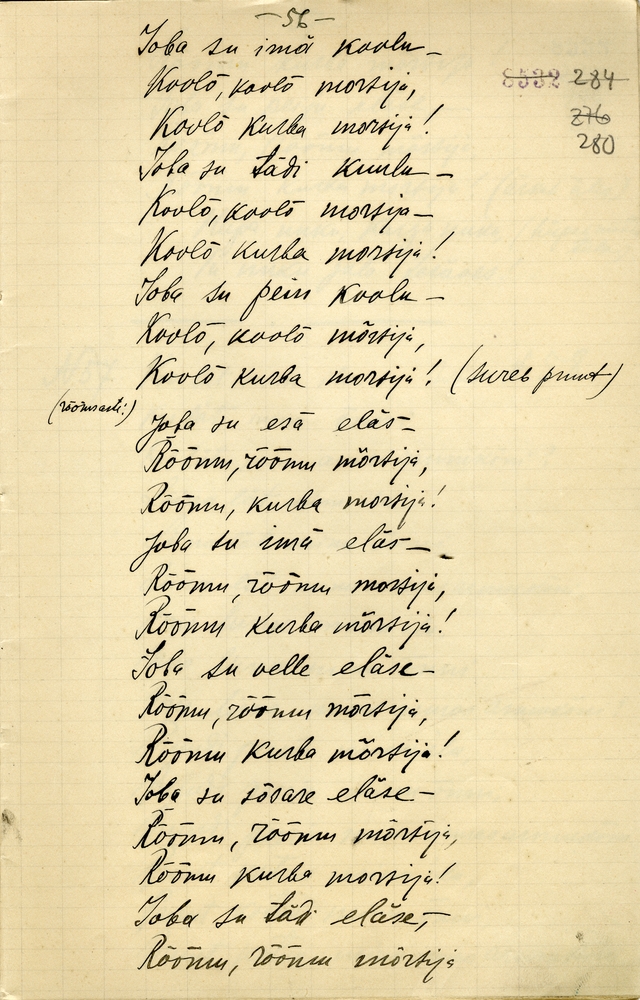 – 56 –
Joba su imä koolu –
8532 284
Koolõ, koolõ morsija,
276
Koolõ kurba morsija!
280
Joba su tädi kuulu –
Koolõ, koolõ morsija –
Koolõ kurba morsija!
Joba su pein koolu –
Koolõ, koolõ mõrsija,
Koolõ kurba morsija! (sureb pruut)
(rõõmsasti:)
Joba su esä eläs –
Rõõmu, rõõmu mõrsija,
Rõõmu, kurba morsija!
Joba su imä eläs –
Rõõmu, rõõmu morsija,
Rõõmu kurba mõrsija!
Joba su velle eläse –
Rõõmu, rõõmu mõrsija,
Rõõmu kurba mõrsija!
Joba su sõsare eläse –
Rõõmu, rõõmu mõrsija,
Rõõmu kurba morsija!
Joba su tädi eläse, –
Rõõmu, rõõmu mõrsija